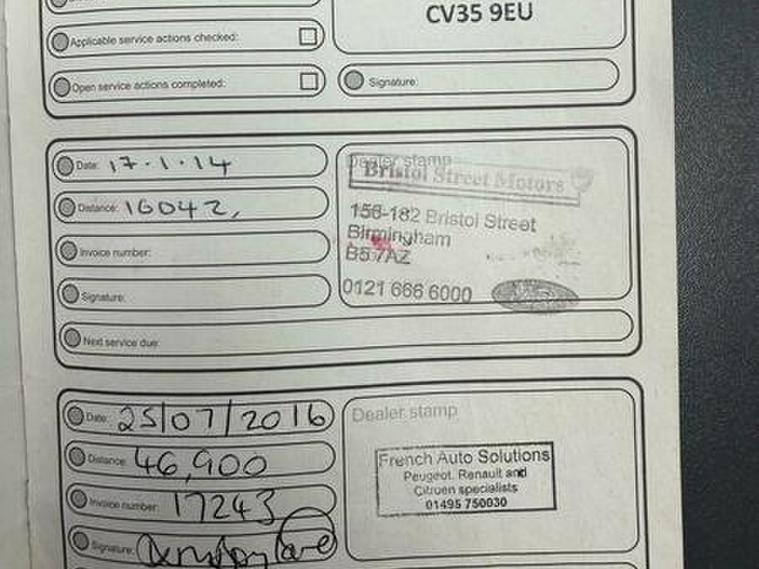 CV35 9EU
Applicable service actions checked:
Open service actions completed:
Signature:
Date: 17.1.14
Dealer stamp
Bristol Street Motors
Distance: 16042,
156-182 Bristol Street
Birmingham
B5 7AZ
Invoice number:
Signature:
0121 666 6000
Next service due:
Date: 25/07/2016
Dealer stamp
Distance: 46,900
French Auto Solutions
Peugeot, Renault and
Citroen specialists
01495 750030
Invoice number: 17243
Signature: